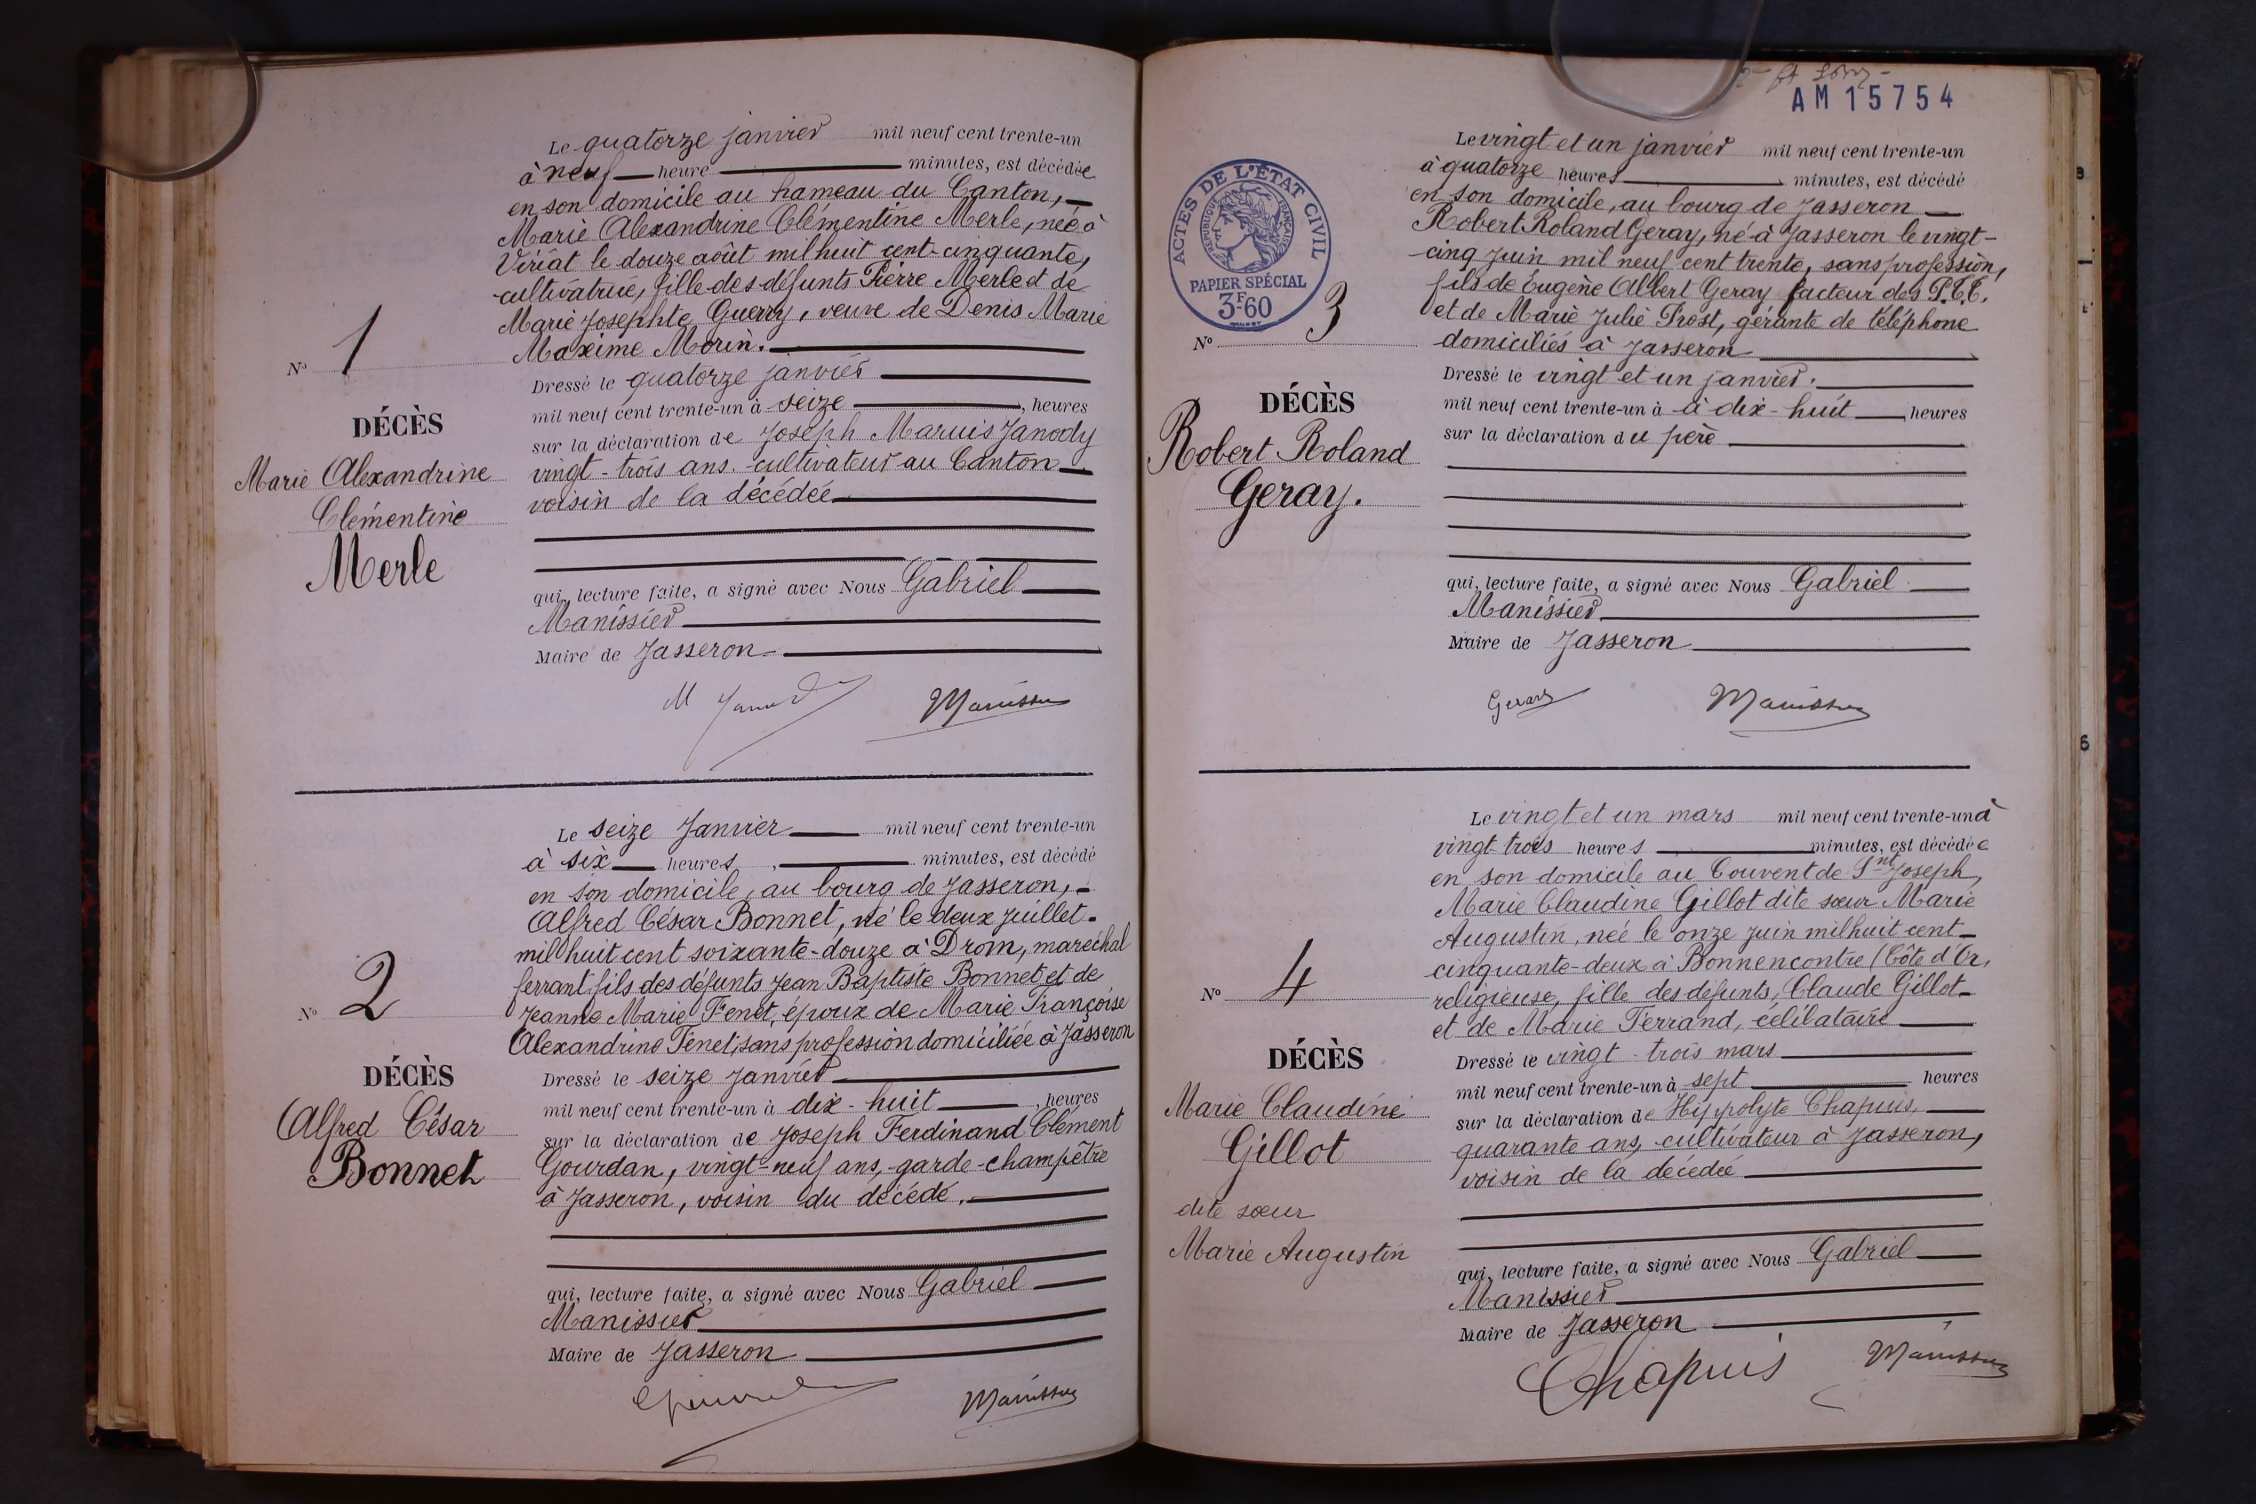 Le quatorze janvier mil neuf cent trente-un
à neuf heure minutes, est décédée
en son domicile au hameau du Canton,
Marie Alexandrine Clémentine Merle, née à
Viriat le douze août mil huit cent cinquante,
cultivatrice, fille des défunts Pierre Merle et de
Marie Josephte Guerry, veuve de Denis Marie
Maxime Morin.
Nº 1
DÉCÈS
Marie Alexandrine
Clémentine
Merle
Dressé le quatorze janvier
mil neuf cent trente-un à seize, heures
sur la déclaration de Joseph Maruis Janody
vingt-trois ans cultivateur au Canton
voisin de la décédée
qui, lecture faite, a signé avec Nous Gabriel
Manissier
Maire de Jasseron
Manissier
Le seize Janvier mil neuf cent trente-un
à six heures, minutes, est décédé
en son domicile, au bourg de Jasseron,
Alfred César Bonnet, né le deux Juillet
mil huit cent soixante-douze à Drom, maréchal
ferrant, fils des défunts Jean Baptiste Bonnet et de
Jeanne Marie Fenet, époux de Marie Françoise
Alexandrine Fenet, sans profession domiciliée à Jasseron
Nº 2
DÉCÈS
Alfred César
Bonnet
Dressé le seize Janvier
mil neuf cent trente-un à dix-huit, heures
sur la déclaration de Joseph Ferdinand Clément
Gourdan, vingt-neuf ans, garde-champêtre
à Jasseron, voisin du décédé.
qui, lecture faite, a signé avec Nous Gabriel
Manissier
Maire de Jasseron
Manissier
AM 15754
ACTES DE L'ÉTAT CIVIL
RÉPUBLIQUE FRANÇAISE
PAPIER SPÉCIAL
3F60
Le vingt et un janvier mil neuf cent trente-un
à quatorze heures minutes, est décédé
en son domicile, au bourg de Jasseron
Robert Roland Geray, né à Jasseron le vingt-
cinq Juin mil neuf cent trente, sans profession,
fils de Eugène Albert Geray facteur des P.T.T.
et de Marie Julie Prost, gérante de téléphone
domiciliés à Jasseron
Nº 3
DÉCÈS
Robert Roland
Geray.
Dressé le vingt et un janvier.
mil neuf cent trente-un à à dix-huit, heures
sur la déclaration du père
qui, lecture faite, a signé avec Nous Gabriel
Manissier
Maire de Jasseron
Geray Manissier
Le vingt et un mars mil neuf cent trente-un à
vingt trois heures minutes, est décédée
en son domicile au Couvent de Snt Joseph,
Marie Claudine Gillot dite sœur Marie
Augustin, née le onze juin mil huit cent
cinquante-deux à Bonnencontre (Côte d'Or,
religieuse, fille des défunts, Claude Gillot
et de Marie Ferrand, célibataire
Nº 4
DÉCÈS
Marie Claudine
Gillot
dite sœur
Marie Augustin
Dressé le vingt-trois mars
mil neuf cent trente-un à sept heures
sur la déclaration de Hippolyte Chapuis,
quarante ans, cultivateur à Jasseron,
voisin de la décédée
qui, lecture faite, a signé avec Nous Gabriel
Manissier
Maire de Jasseron
Chapuis Manissier